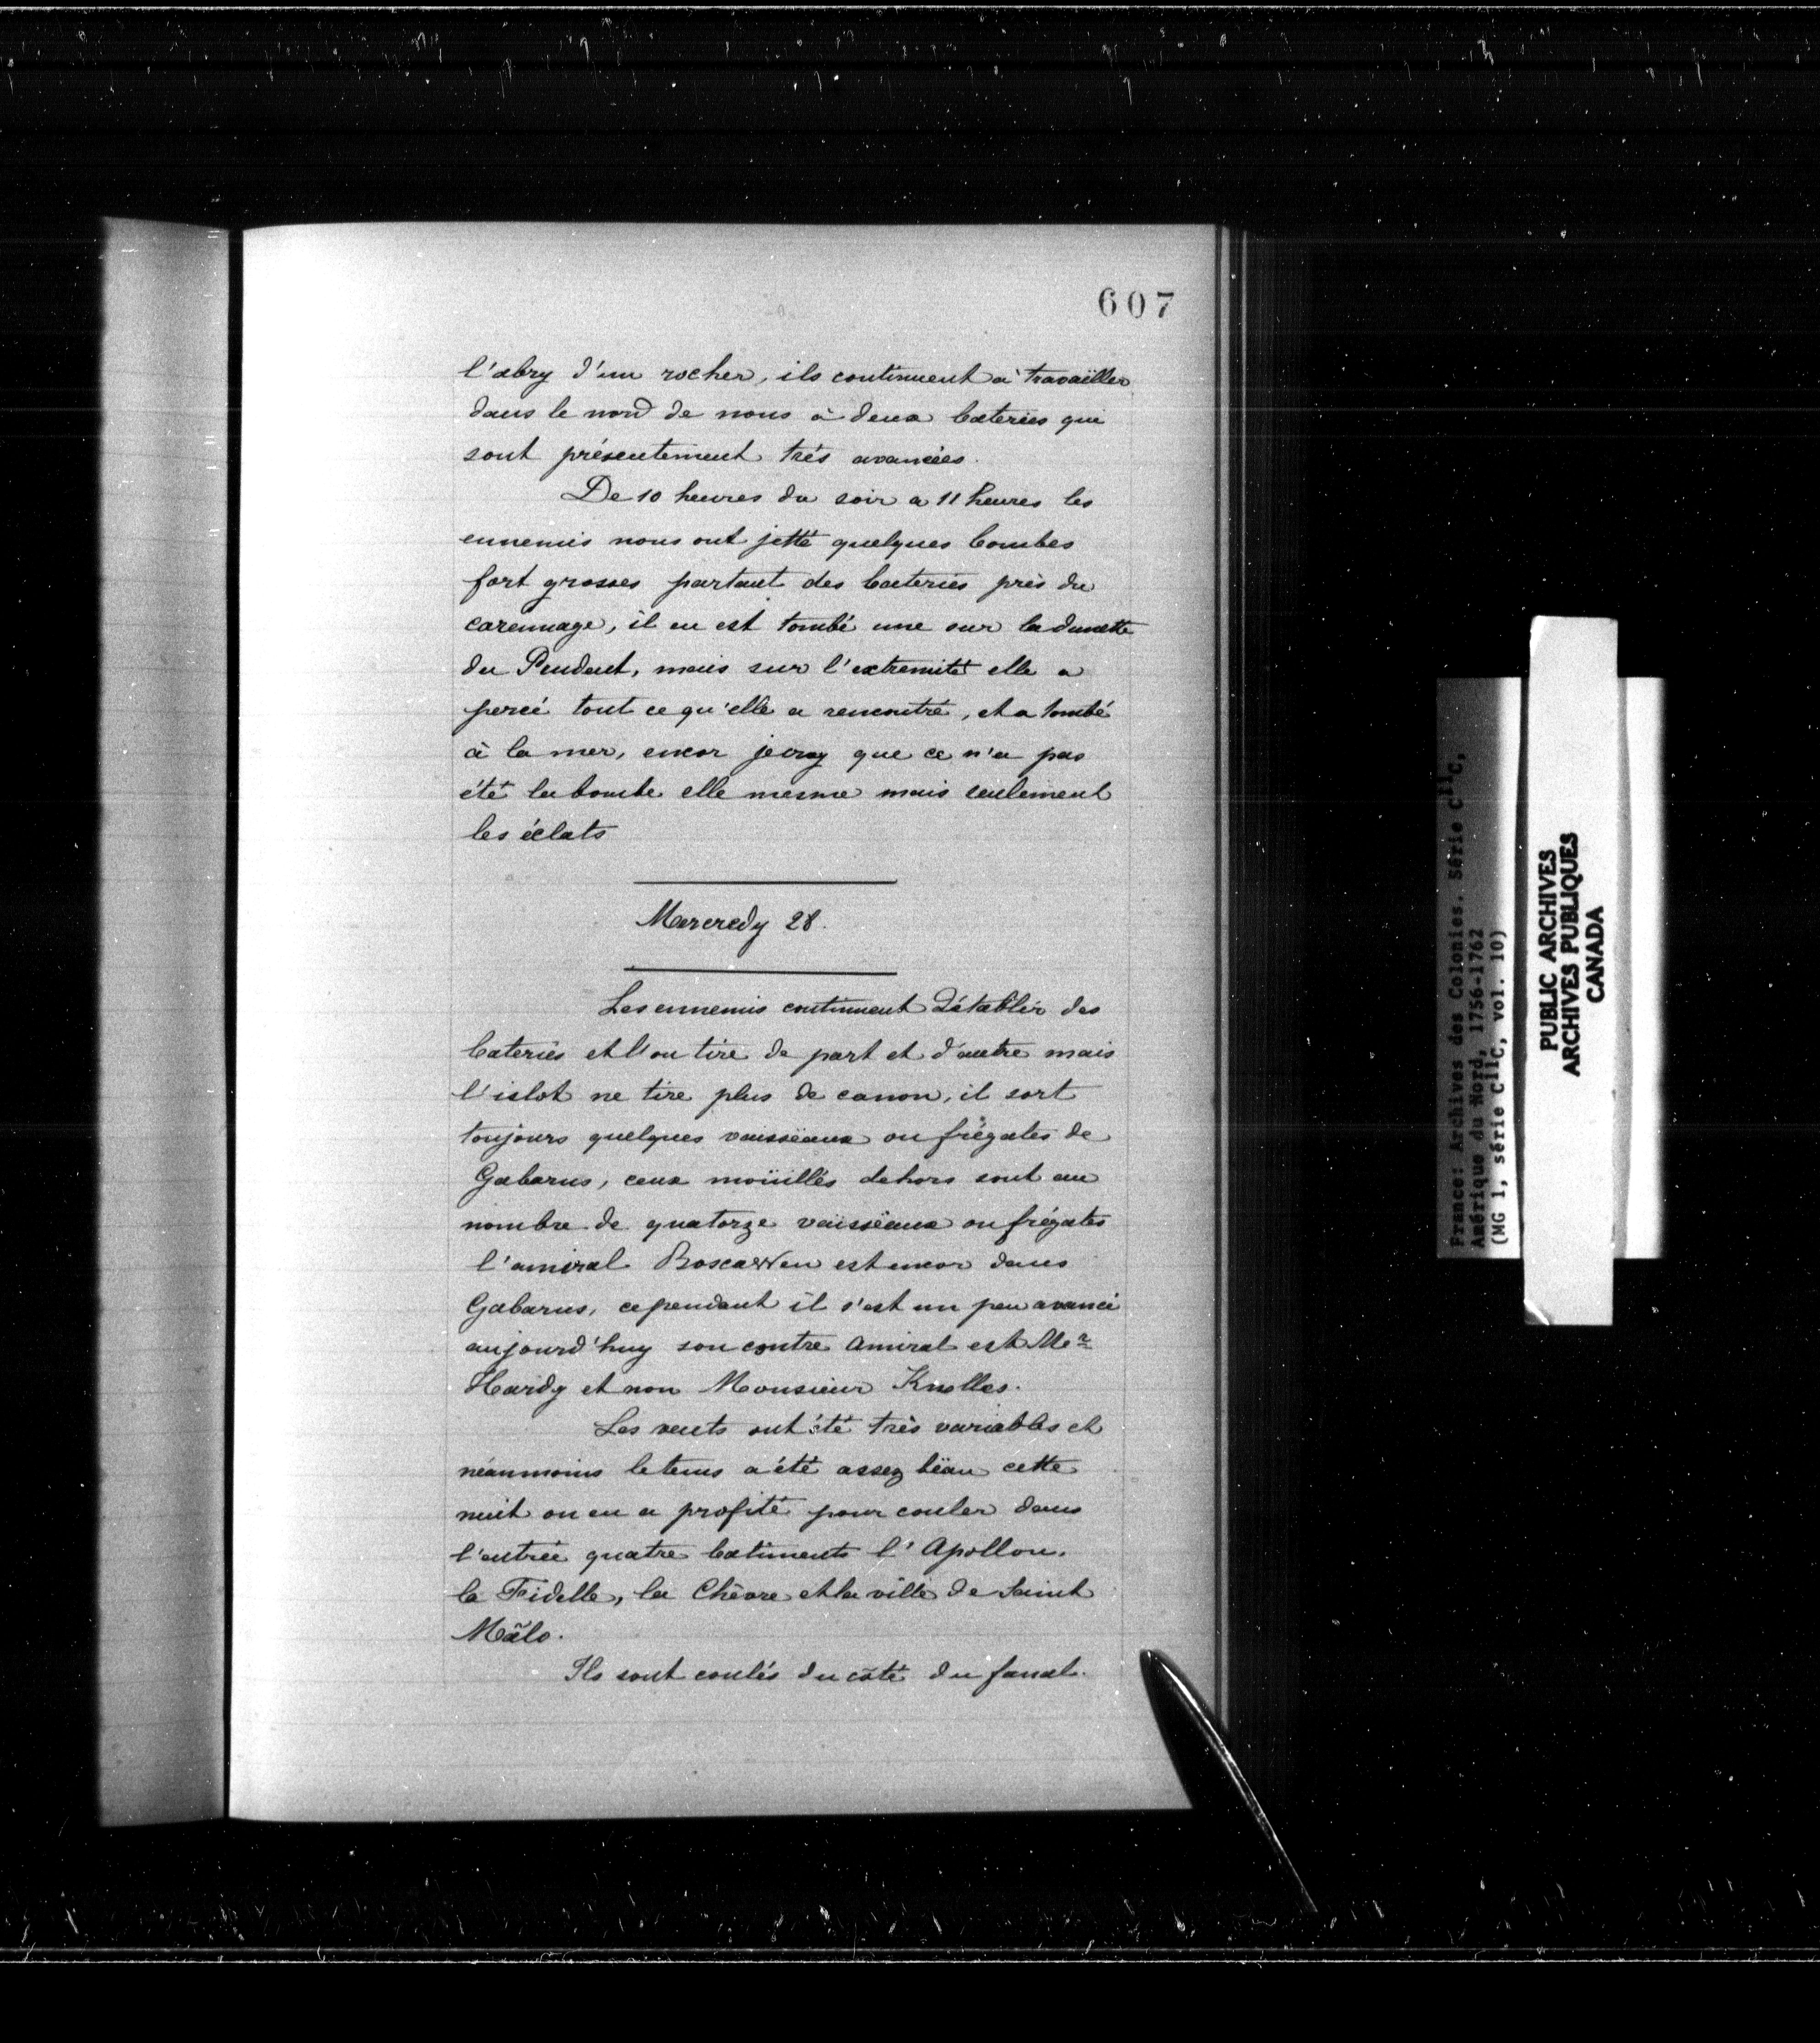 607
l'abry d'un rocher, ils continuent à travaïller
dans le nord de nous à deux bateries qui
sont présentement très avancées.
De 10 heures du soir a 11 heures les
ennemis nous ont jetté quelques bombes
fort grosses partant des bateries près du
carennage, il en est tombé une sur la dunette
du Prudent, mais sur l'extremité elle a
percé tout ce qu'elle a rencontré, et a tombé
à la mer, encor je croy que ce n'a pas
été la bombe elle mesme mais seulement
les éclats
Mercredy 28.
Les ennemis continuent d'établir des
bateries et l'on tire de part et d'autre mais
l'islot ne tire plus de canon, il sort
toujours quelques vaisseaux ou frégates de
Gabarus, ceux moüillés dehors sont au
nombre de quatorze vaisseaux ou frégates
l'amiral Boscawen est encor dans
Gabarus, cependant il s'est un peu avancé
aujourd'huy son contre amiral est Mr
Hardy et non Monsieur Knolles.
Les vents ont été très variables et
néanmoins le tems a été assez bëau cette
nuit on en a profité pour couler dans
l'entrée quatre batiments l'Apollon,
la Fidelle, la Chèvre et la ville de Saint
Mâlo.
Ils sont coulés du côté du fanal.
France: Archives des Colonies. Série C11C,
Amérique du Nord, 1756-1762
(MG 1, série C11C, vol. 10)
PUBLIC ARCHIVES
ARCHIVES PUBLIQUES
CANADA